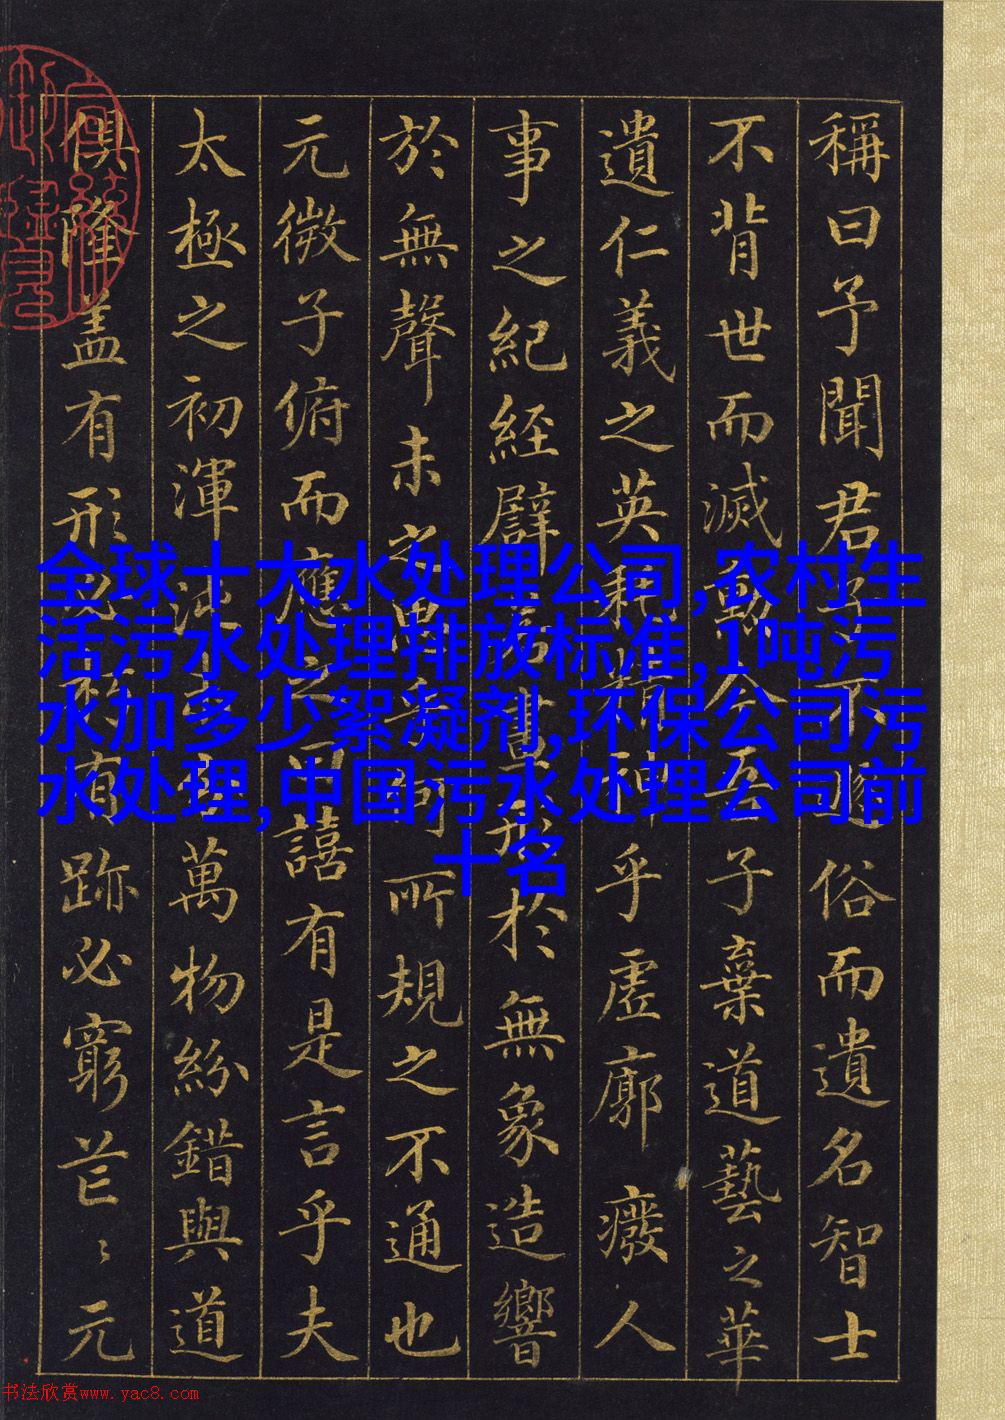 稱曰予聞君子不遯俗而遺名智士
不背世而滅勳今吾子棄道藝之華
遺仁義之英耗精神乎虛廓廢人
事之紀經譬若畫形於無象造響
於無聲未之思乎何所規之不通也
元微子俯而應之曰譆有是言乎夫
太極之初渾沌未分萬物紛錯與道
俱隆盖有形必朽有跡必窮芒々元
全球十大水处理公司,农村生
活污水处理排放标准,1吨污
水加多少絮凝剂,环保公司污
水处理,中国污水处理公司前
十名
书法欣赏www.yac8.com